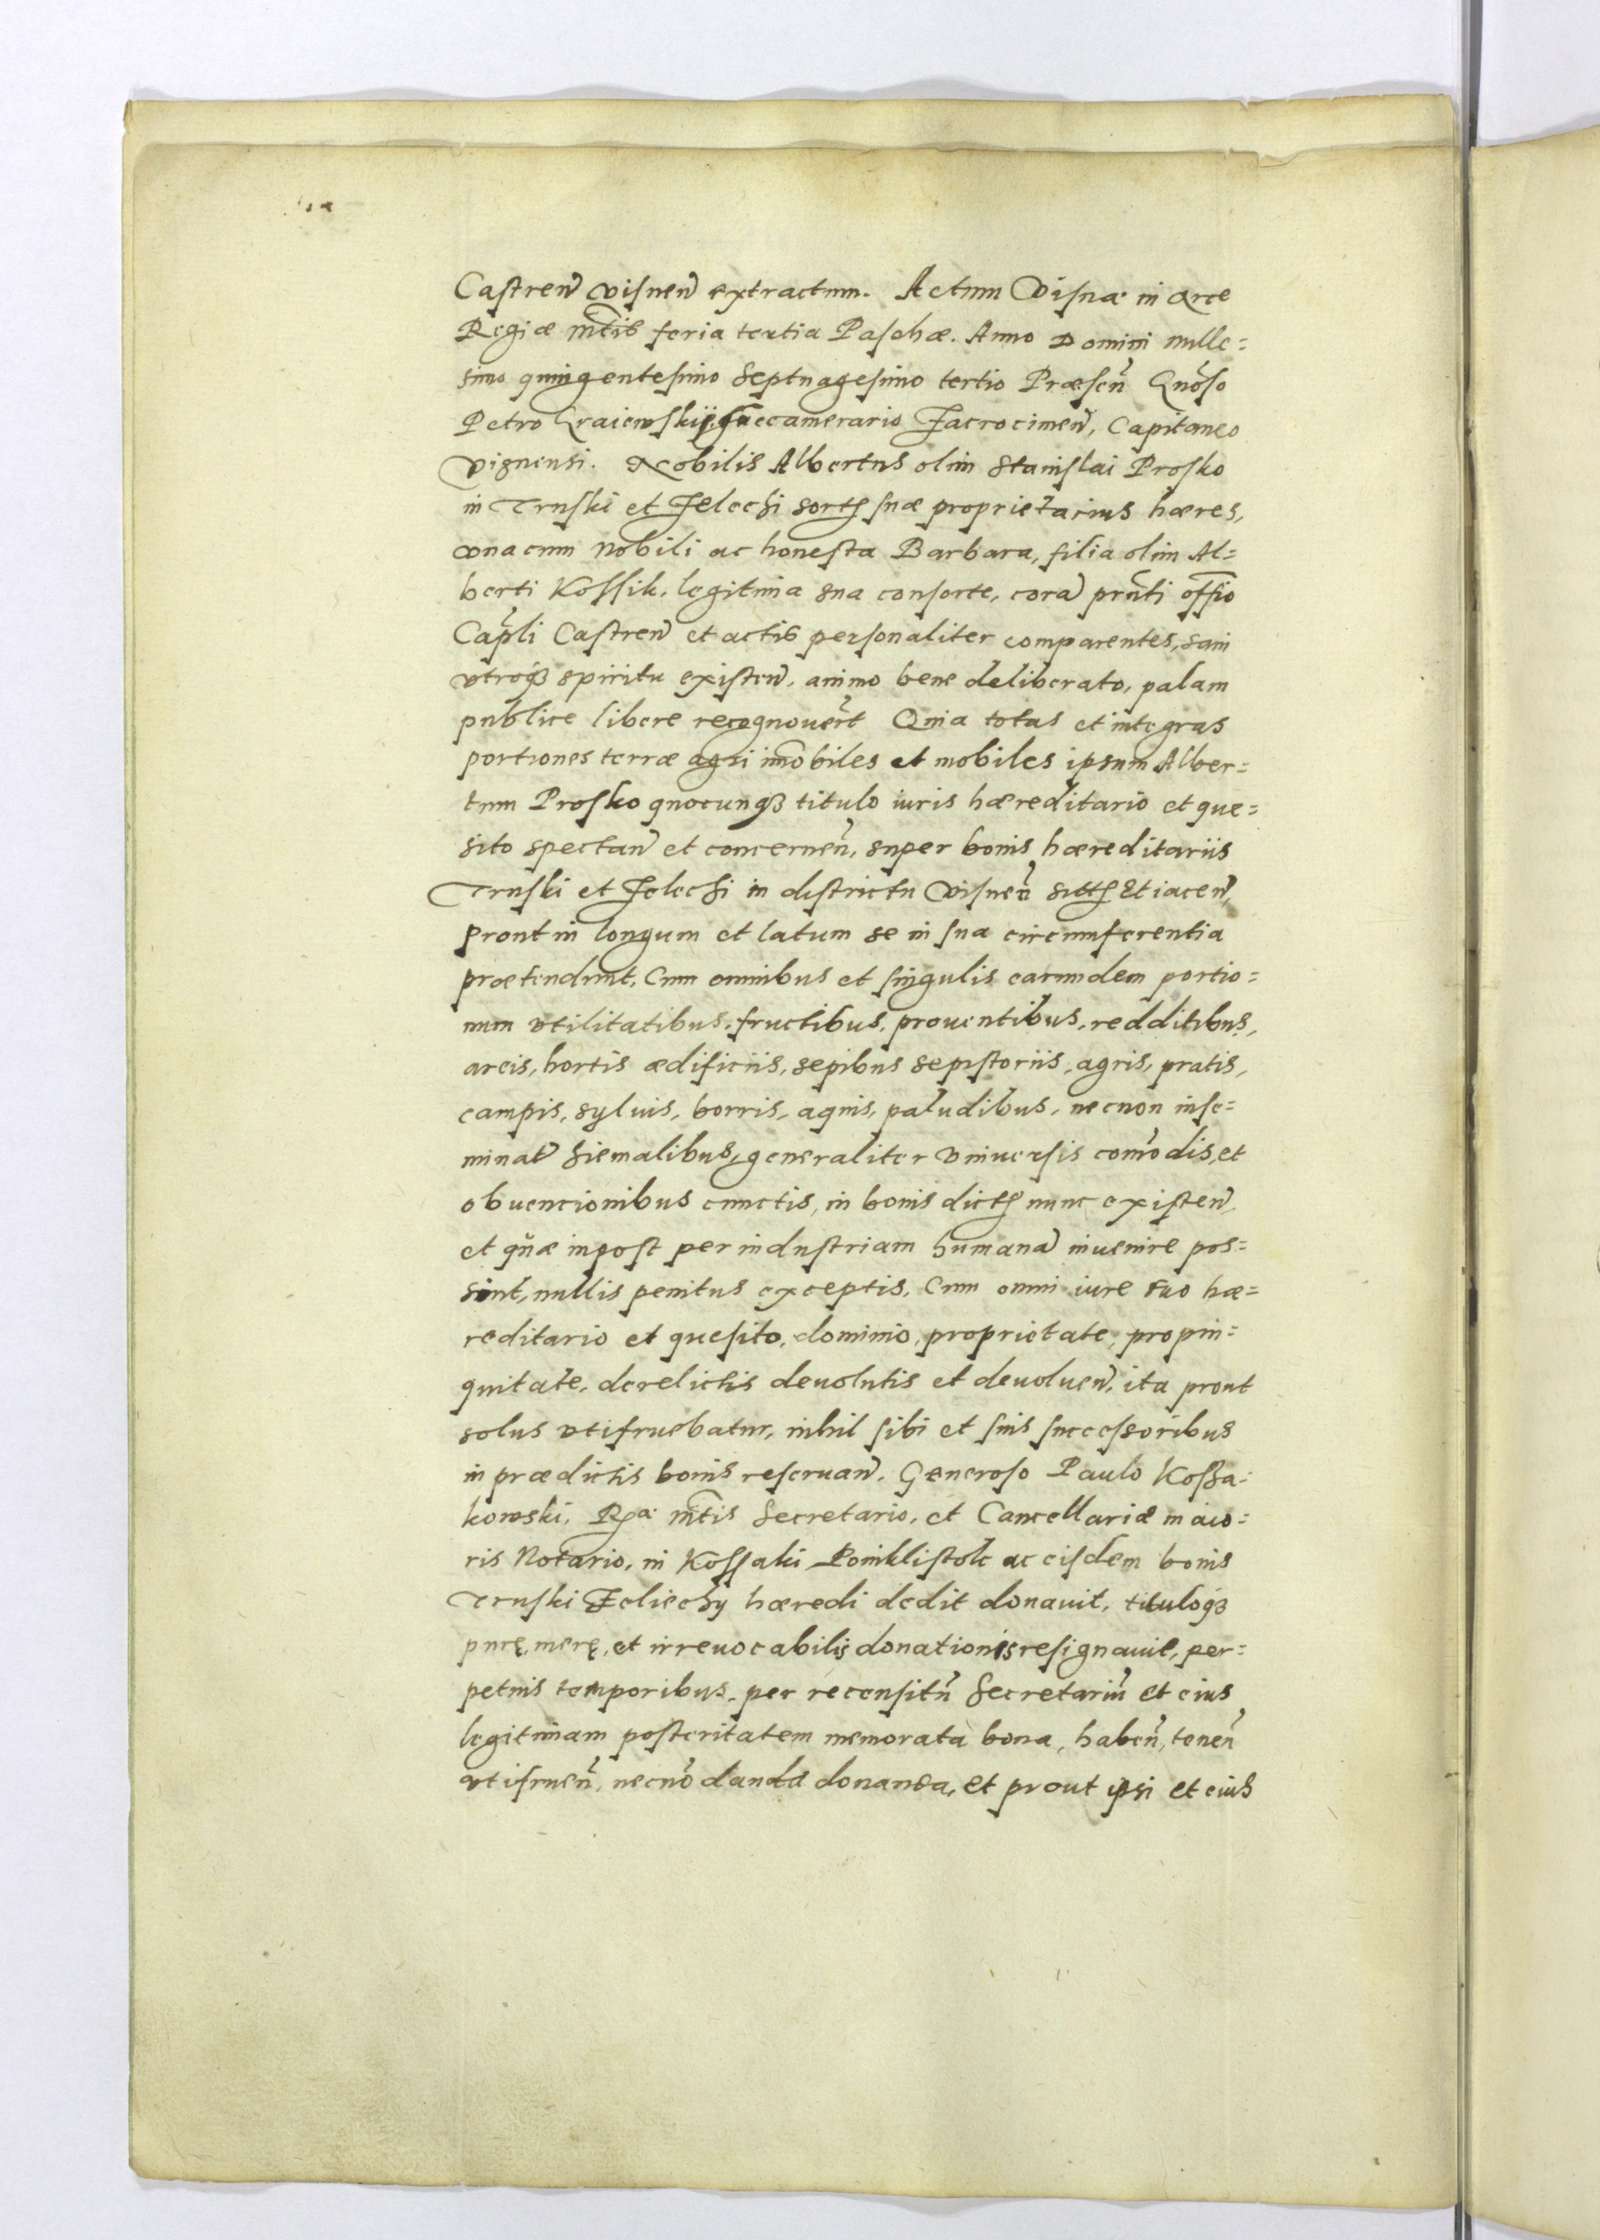 Castreñ Visneñ extractum. Actum Visnæ in Arce
Regiæ Mtis feria tertia Paschæ. Anno Domini mille=
simo quingentesimo Septuagesimo tertio Præsen̄ Gnoso
Petro Graiewskij, succamerario Zacrocimeñ, Capitaneo
Visnensi. Nobilis Albertus olim Stanislai Prosko
in Truski et Zelechi sortis suæ proprietarius hæres,
vna cum Nobili ac honesta Barbara, filia olim Al=
berti Kossik, legitima sua consorte, corā prnti offio
Capli Castreñ et actis personaliter comparentes, sani
vtroq3 spiritu existeñ, animo bene deliberato, palam
publice libere recognouert Quia totas et integras
portiones terræ agri imobiles et mobiles ipsum Alber=
tum Prosko quocunq3 titulo iuris hæreditario et que=
sito spectañ et concerneñ, super bonis hæreditariis
Truski et Zelechi in districtu Visneñ sittis Et iaceñ,
Prout in longum et latum se in sua circumferentia
prætendunt, Cum omnibus et singulis earumdem portio=
num vtilitatibus, fructibus, prouentibus, redditibus,
areis, hortis ædificiis, sepibus sepistoriis, agris, pratis,
campis, syluis, borris, aquis, paludibus, necnon inse=
minat hiemalibus, generaliter vniuersis comodis, et
obuencionibus cunctis, in bonis dictis nunc existeñ,
et quæ inpost per industriam humanā inuenire pos=
sint, nullis penitus exceptis, Cum omni iure suo hæ=
reditario et quesito, dominio, proprietate, propin=
quitate, derelictis deuolutis et deuolueñ, ita prout
solus vtifruebatur, nihil sibi et suis successoribus
in prædictis bonis reseruañ. Generoso Paulo Kossa=
kowski, Ræ Mtis Secretario, et Cancellariæ maio=
ris Notario, in Kossaki Poniklistok ac eisdem bonis
Truski Zeliechy hæredi dedit donauit, tituloq3
purę, merę, et irreuocabilis donationis resignauit, per=
petuis temporibus, per recensitū Secretariū et eius
legitimam posteritatem memorata bona, habeñ, teneñ
vtifrueñ, necnō danda donanda, et prout ipsi et eius